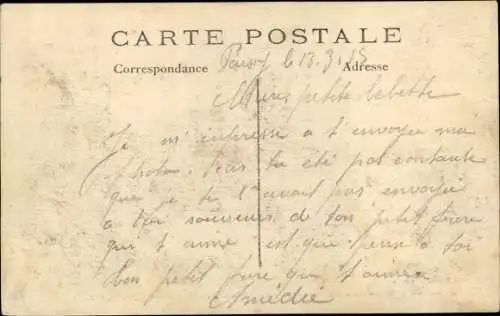 CARTE POSTALE
Correspondance
Adresse
le 13.3.15
petite bebette
Je m'empresse a t'envoyer ma
photo. tu été pas contente
que je te l'avait pas envoyée
a toi souvenir de ton petit frere
qui t'aime et qui pense a toi
ton petit frere qui t'aime
Amédée